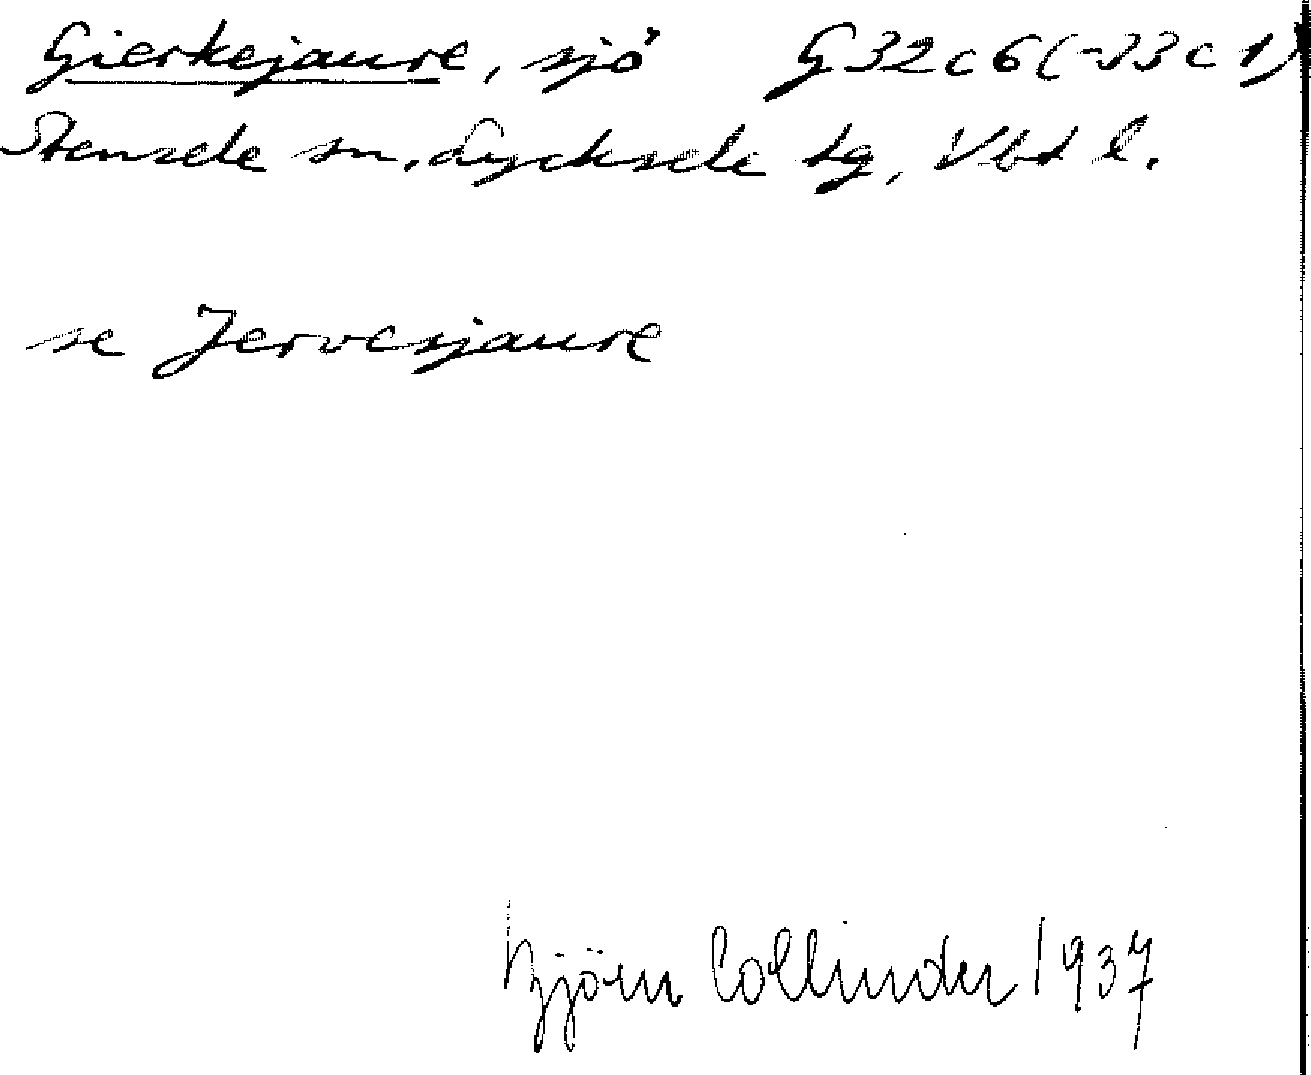 Gierkejaure, sjö G32c6(-33c1)
Stensele sn. Lycksele tg, Vbt l.
se Jervesjaure
Björn Collinder 1937